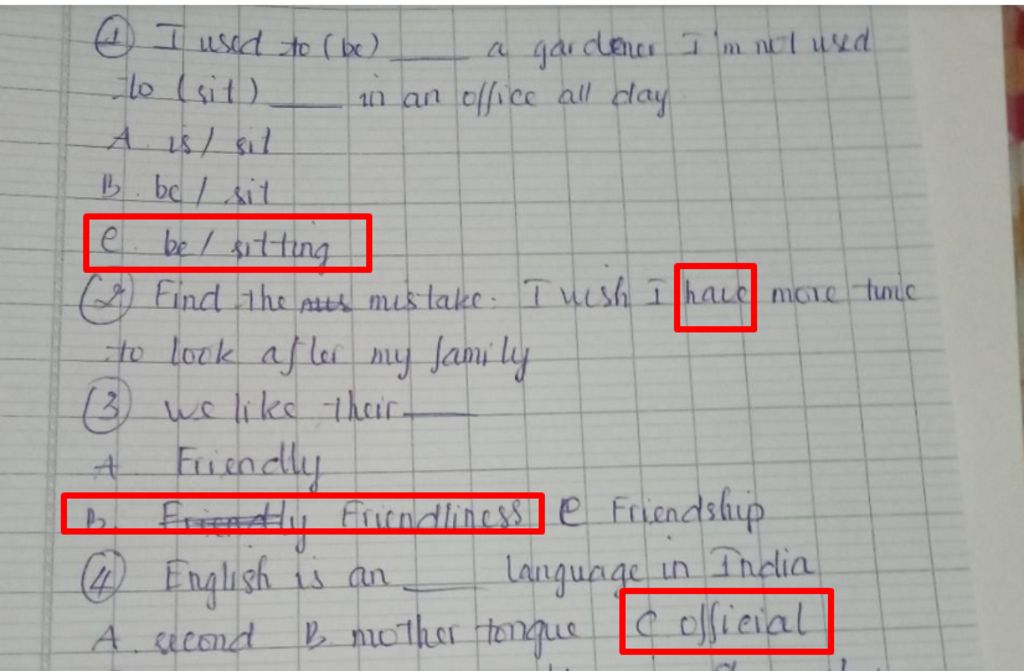 ① I used to (be) ____ a gardener I'm not used
to (sit) ____ in an office all day
A. is / sit
B. be / sit
C. be / sitting
② Find the mistake. I wish I have more time
to look after my family
③ We like their ____
A Friendly
B. Friendliness C Friendship
④ English is an ____ language in India
A. second B. mother tongue C official